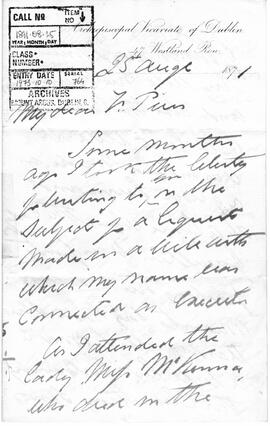 CALL NO
ITEM NO
1871-08-25
YEAR; MONTH; DAY
CLASS
NUMBER
ENTRY DATE
1973-10-10
SERIAL
764
ARCHIVES
MOUNT ARGUS, DUBLIN 6.
Archiepiscopal Vicariate of Dublin
47 Westland Row,
25 Augt 1871
My dear F. Pius
Some months
ago I took the liberty
of writing to you on the
subject of a bequest
made in a will with
which my name was
connected as executor
As I attended the
lady Miss McKenna,
who died in the